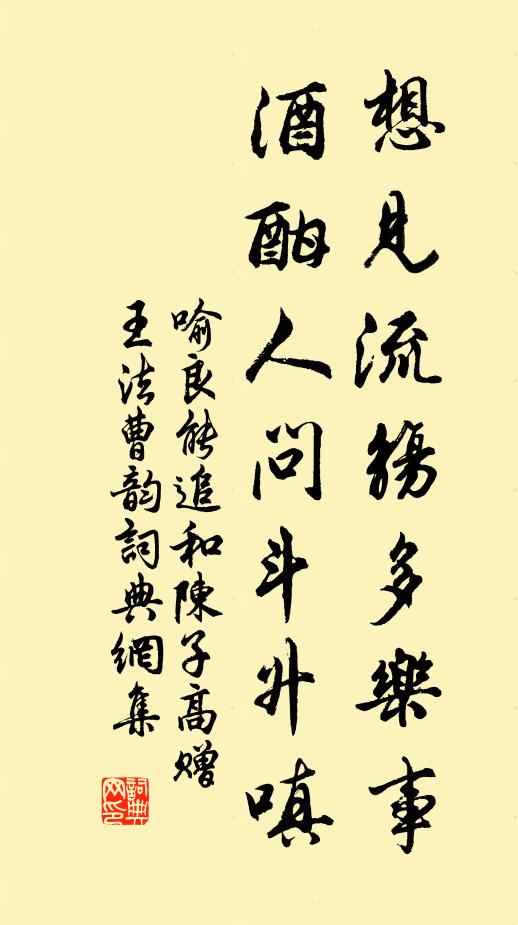 想見流觴多樂事
酒酣人問斗升嗔
喻良能追和陳子高贈
王法曹韵詞典網集
詞典
网印